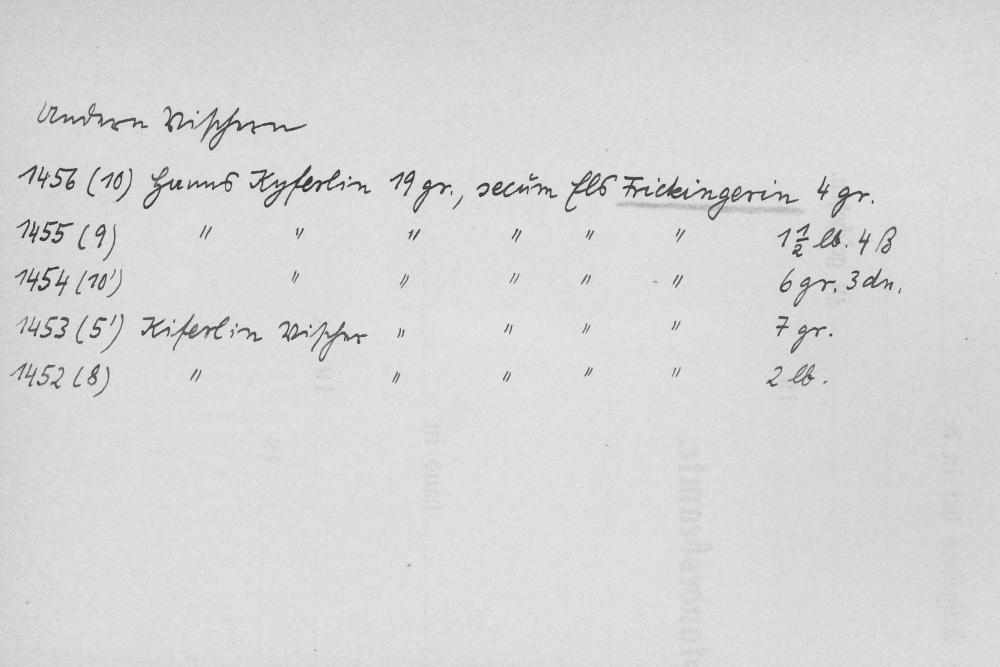 Undern Vischern
1456 (10) Hanns Kyferlin 19 gr., secum Els Frickingerin 4 gr.
1455 (9) " " " " " " 1½ lb. 4 ß
1454 (10') " " " " " 6 gr. 3 dn.
1453 (5') Kiferlin Vischer " " " " 7 gr.
1452 (8) " " " " " 2 lb.